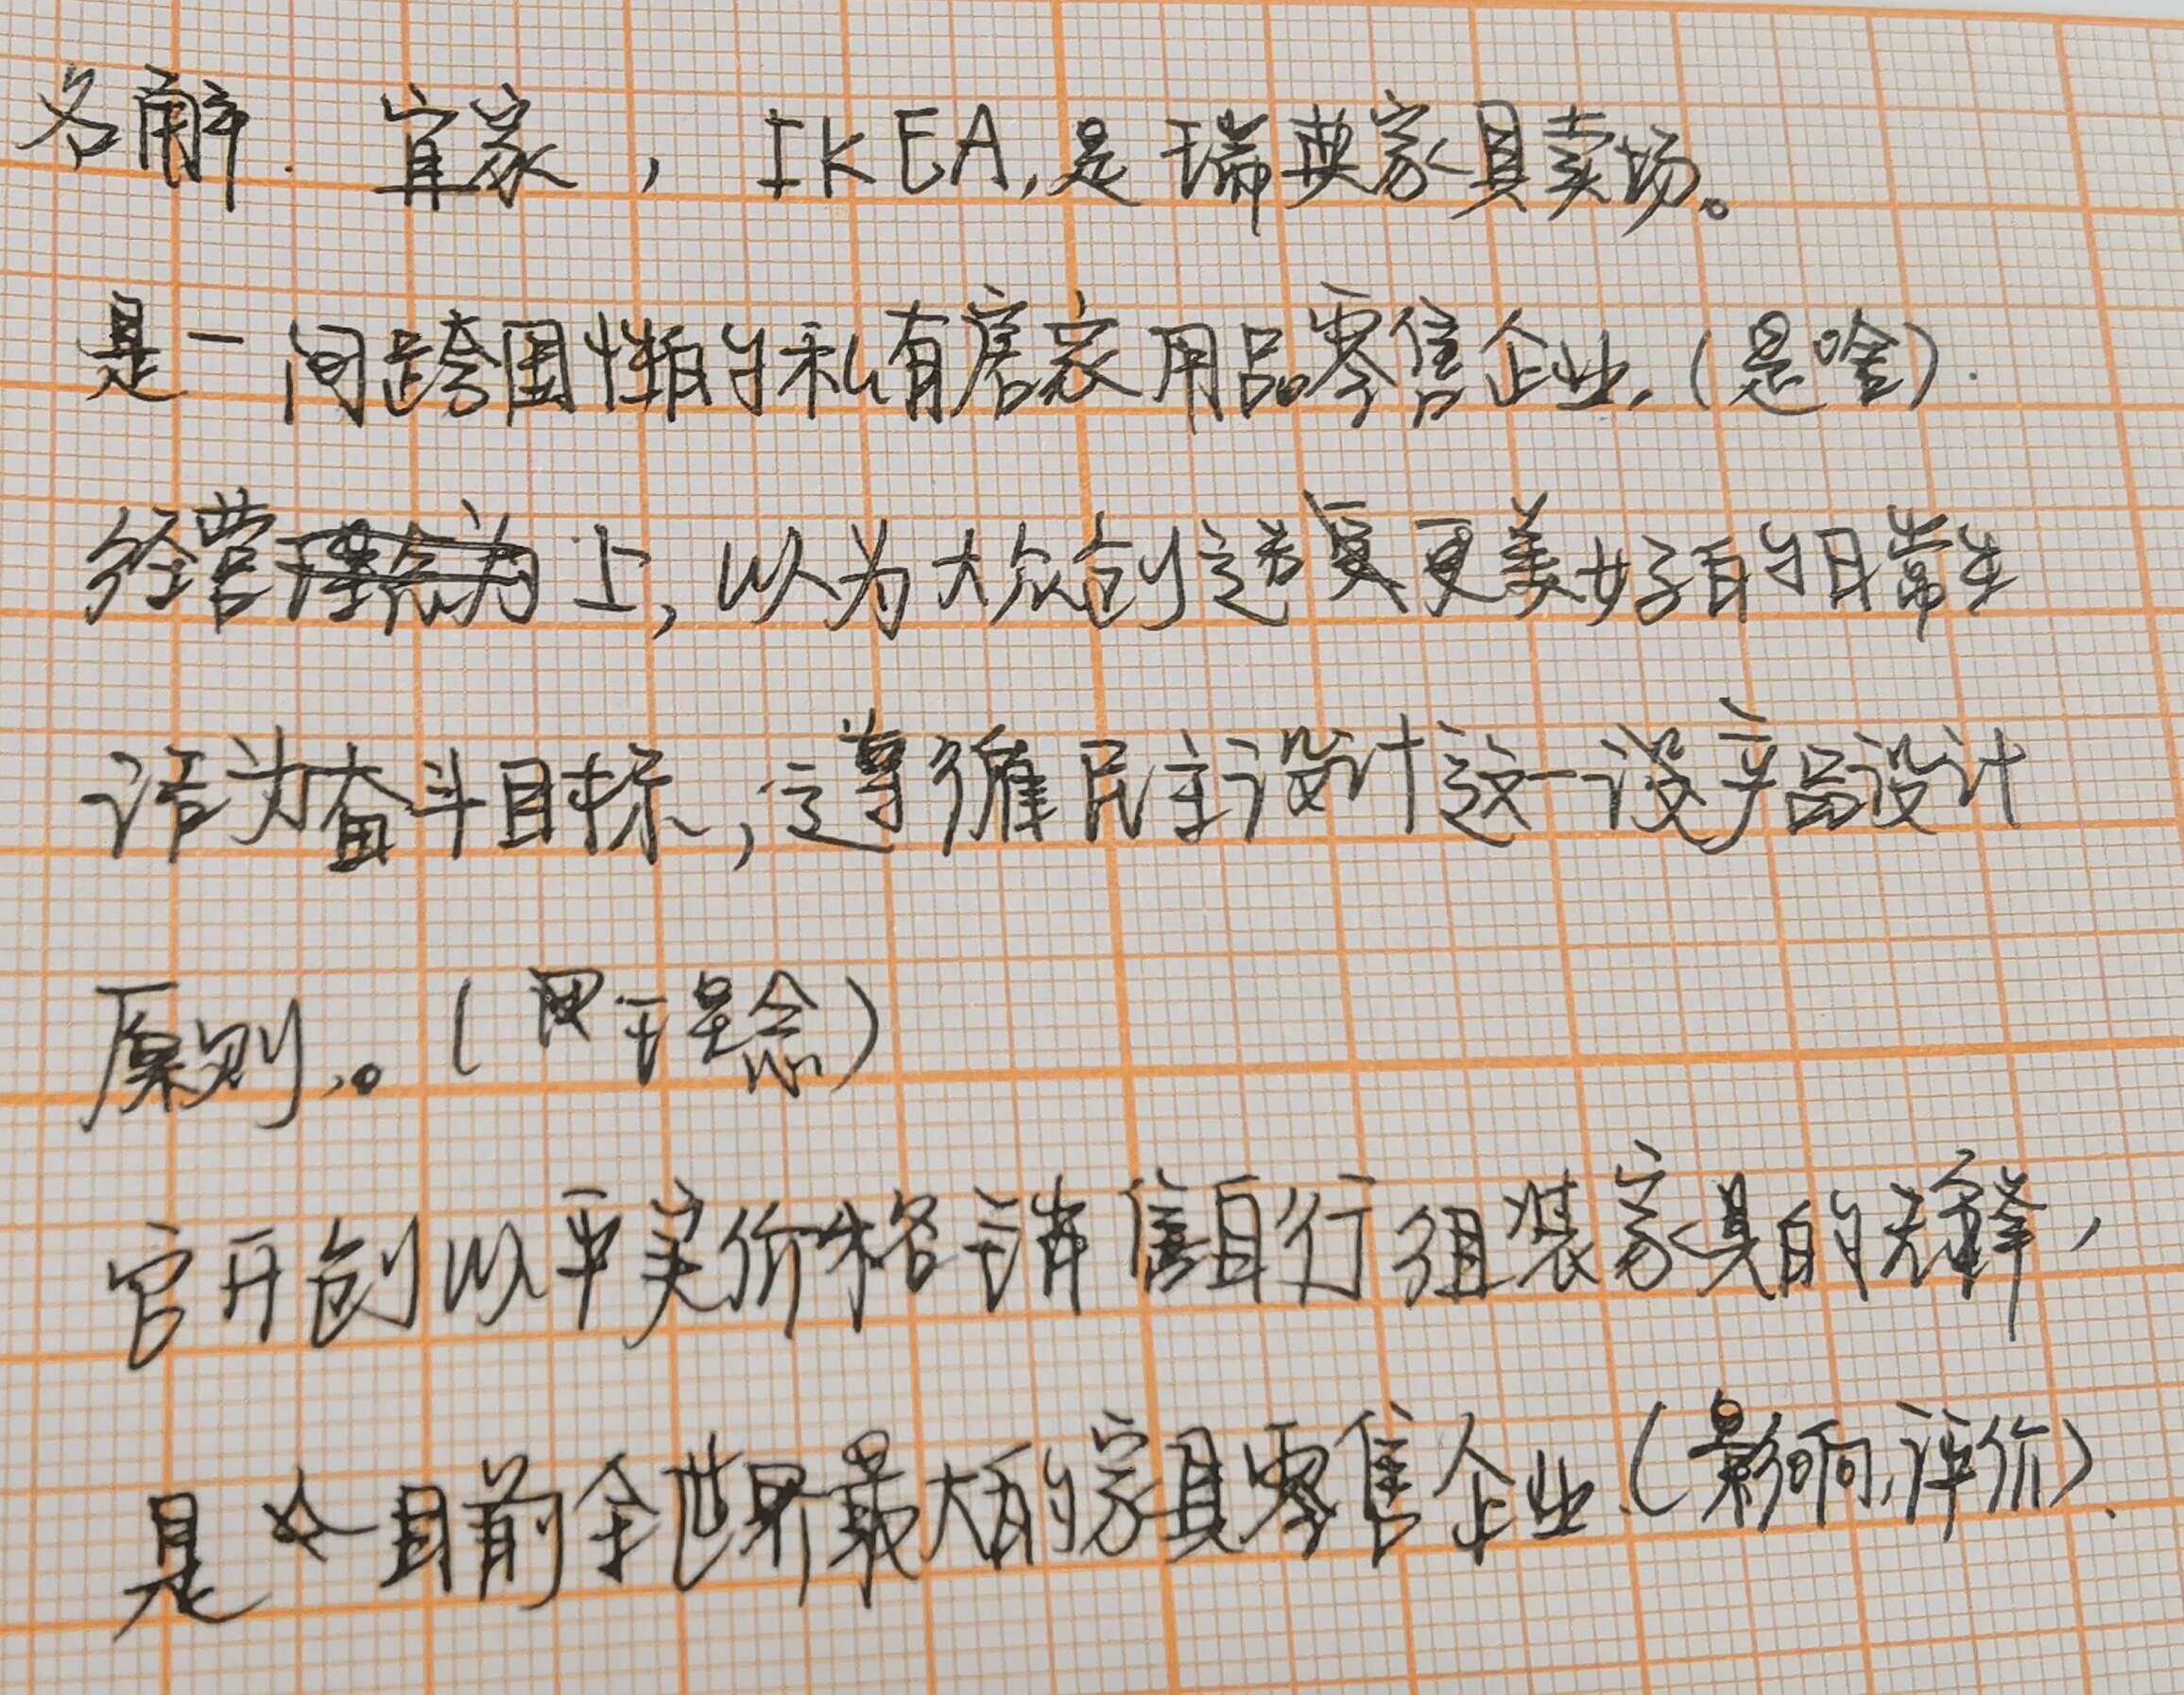 名解. 宜家, IKEA,是瑞典家具卖场。
是一间跨国性的私有居家用品零售企业.(是啥).
经营上,以为大众创造更美好的日常生
活为奋斗目标,遵循民主设计这一产品设计
原则。(理念)
它开创以平实价格销售自行组装家具的先锋,
是目前全世界最大的家具零售企业.(影响,评价).